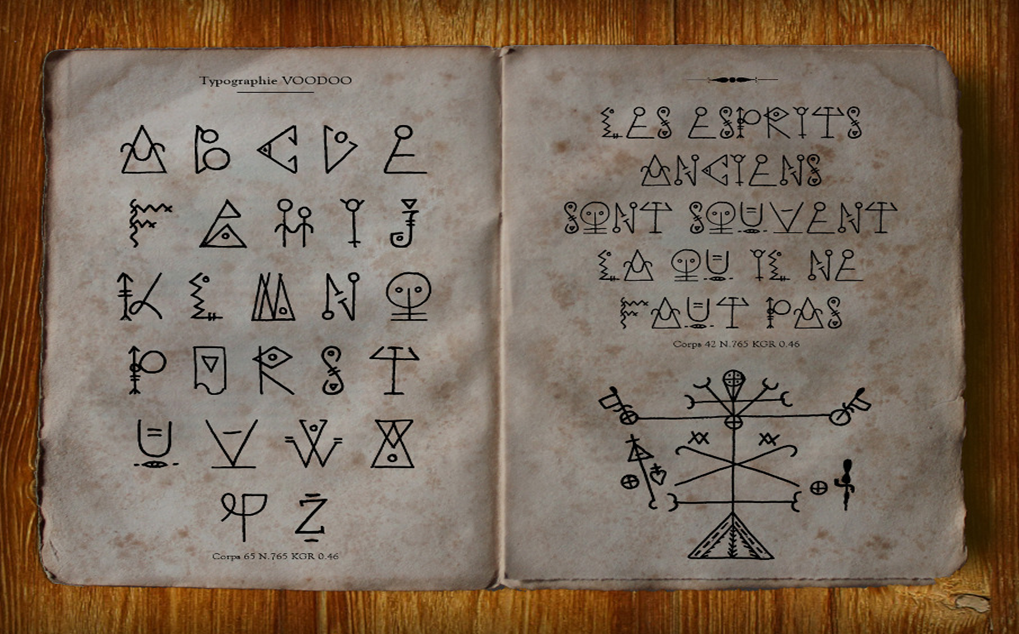 Typographie VOODOO
A B C D E
F G H I J
K L M N O
P Q R S T
U V W X
Y Z
Corps 65 N.765 KGR 0.46
LES ESPRITS
ANCIENS
SONT SOUVENT
LA OU IL NE
FAUT PAS
Corps 42 N.765 KGR 0.46